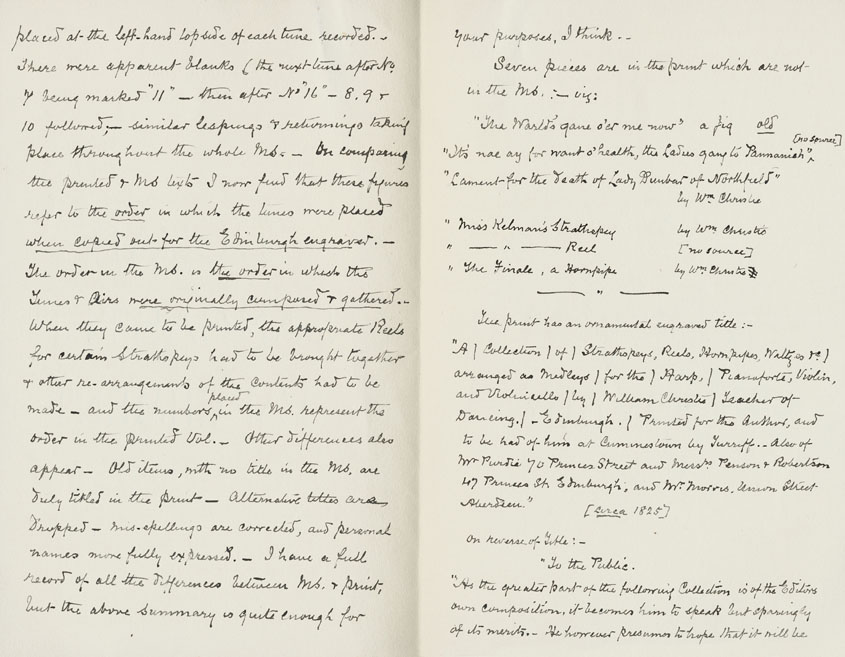 placed at the left-hand topside of each tune recorded. –
There were apparent blanks (the next tune after No.
7 being marked "11" – then after No "16" – 8, 9 &
10 followed; – similar leapings & returnings taking
place throughout the whole Ms. – On comparing
the printed & Ms texts I now find that these figures
refer to the order in which the tunes were placed
when copied out for the Edinburgh engraver. –
The order in the Ms. is the order in which the
Tunes & Airs were originally composed & gathered. –
When they came to be printed, the appropriate Reels
for certain Strathspeys had to be brought together
& other re-arrangements of the contents had to be
made – and the numbers placed in the Ms. represent the
order in the printed Vol. – Other differences also
appear – Old items, with no title in the Ms, are
duly titled in the print – Alternative titles are
Dropped – mis-spellings are corrected, and personal
names more fully expressed. – I have a full
record of all the differences between Ms. & print,
but the above summary is quite enough for
your purposes, I think. –
Seven pieces are in the print which are not
in the Ms. :– viz:
"The Warld's gane o'er me now" a jig old
[no source]
"It's nae ay for want o' health, the Ladies gang to Pannanich",
"Lament for the death of Lady Dunbar of Northfield"
by Wm Christie
" Miss Kelman's Strathspey by Wm Christie
" — " — Reel [no source]
" The Finale, a Hornpipe by Wm Christie
— " —
The print has an ornamental engraved title :–
"A | Collection | of | Strathspeys, Reels, Hornpipes, Waltzes &c |
arranged as Medleys | for the | Harp, | Pianoforte, Violin,
and Violincello | by | William Christie | Teacher of
Dancing. | – Edinburgh. | Printed for the Author, and
to be had of him at Cuminestown by Turriff. – Also of
Mr Purdie 70 Princes Street and Messrs Penson & Robertson
47 Princes St. Edinburgh, and Mr. Morris, Union Street
Aberdeen."
[circa 1825]
On reverse of Title :–
"To the Public.
"As the greater part of the following Collection is of the Editors
own composition, it becomes him to speak but sparingly
of its merits. – He however presumes to hope that it will be